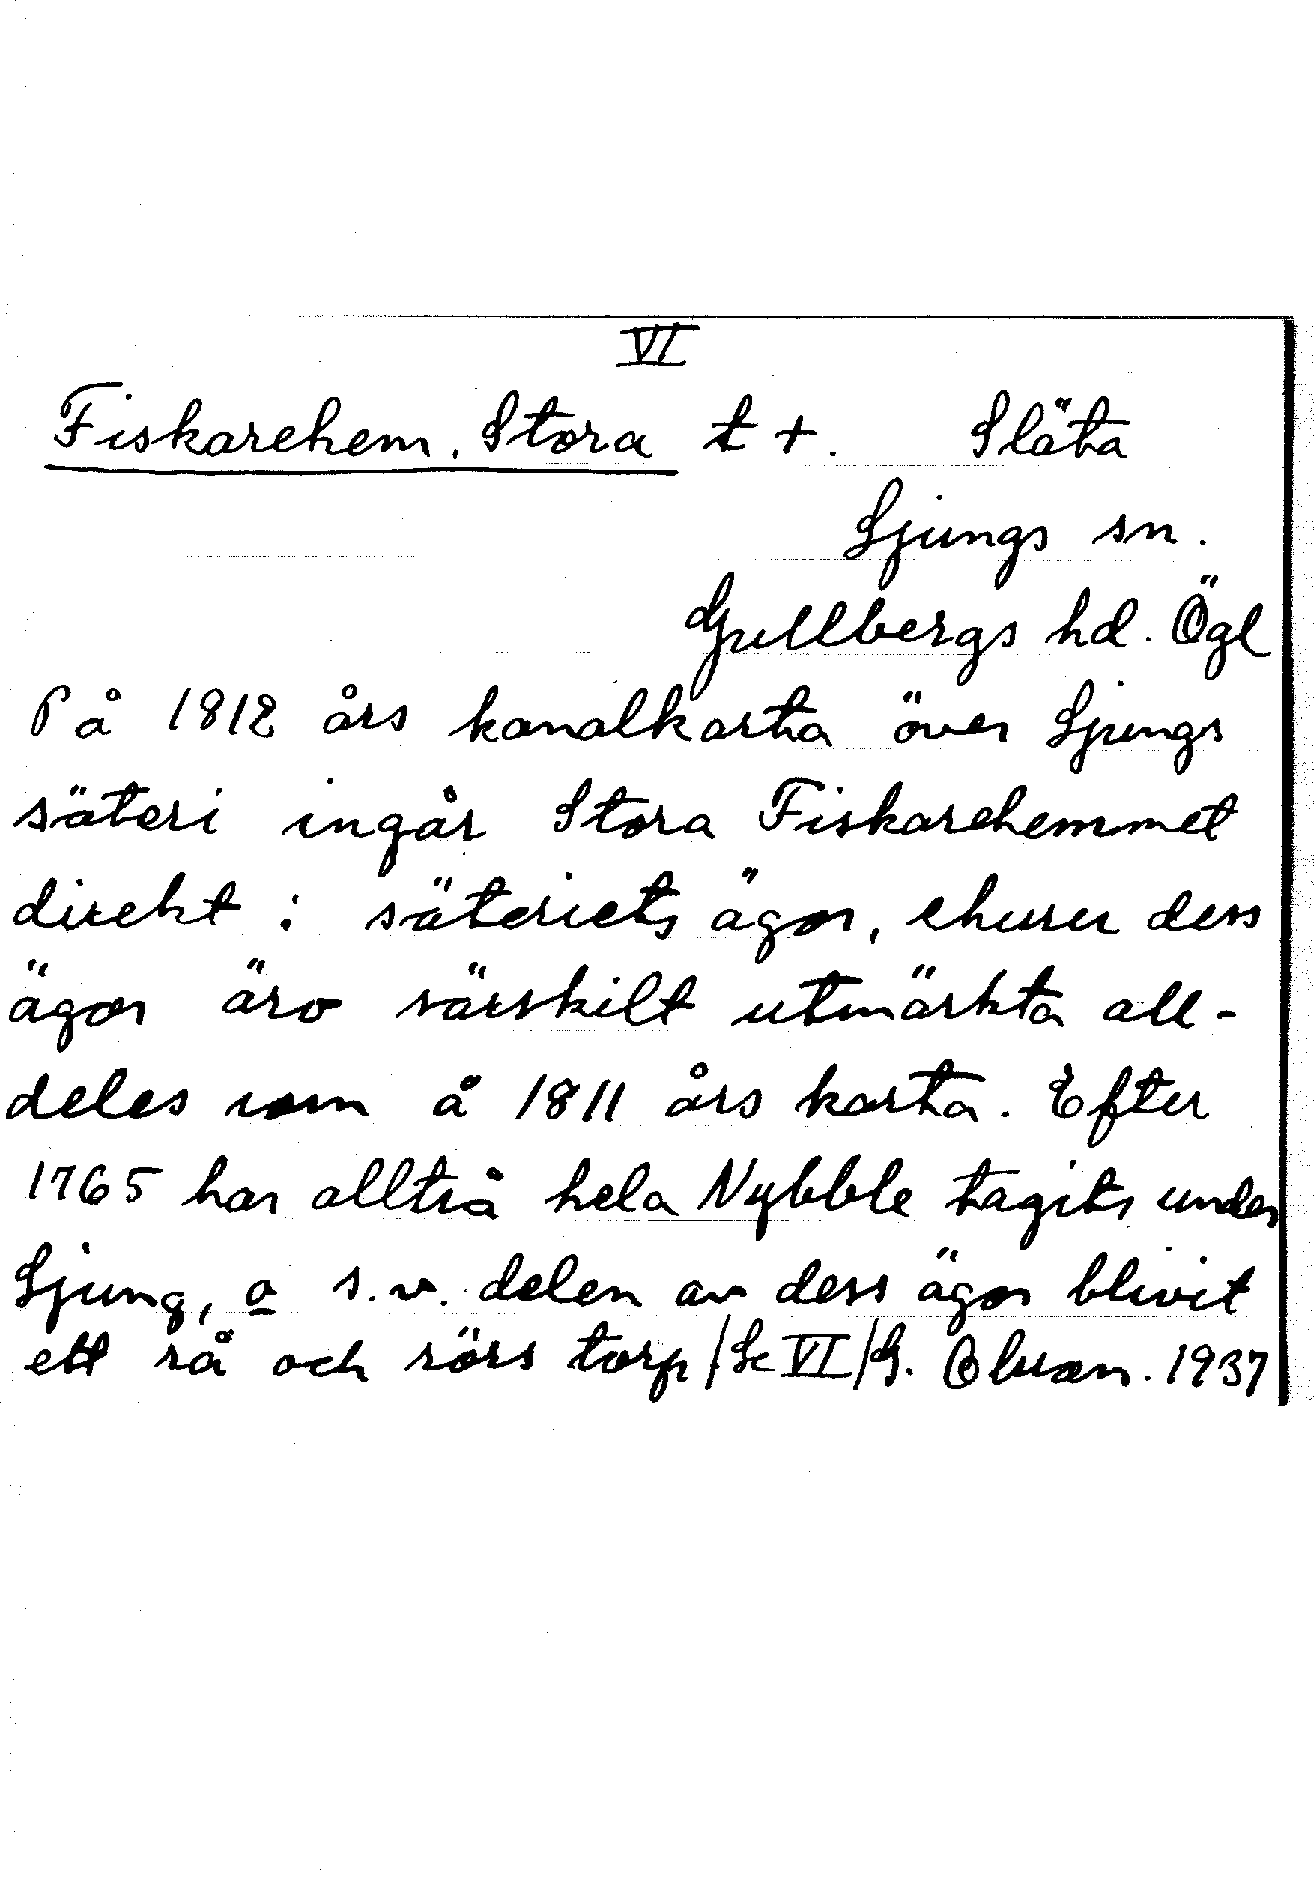 VI
Fiskarehem, Stora t +. Släta
Ljungs sn.
Gullbergs hd. Ögl
På 1812 års kanalkarta över Ljungs
säteri ingår Stora Fiskarehemmet
direkt i säteriets ägor, ehuru dess
ägor äro särskilt utmärkta all-
deles som å 1811 års karta. Efter
1765 har alltså hela Nybble tagits under
Ljung, o s.v. delen av dess ägor blivit
ett rå och rörs torp /Se VI/ G. Olsson. 1937